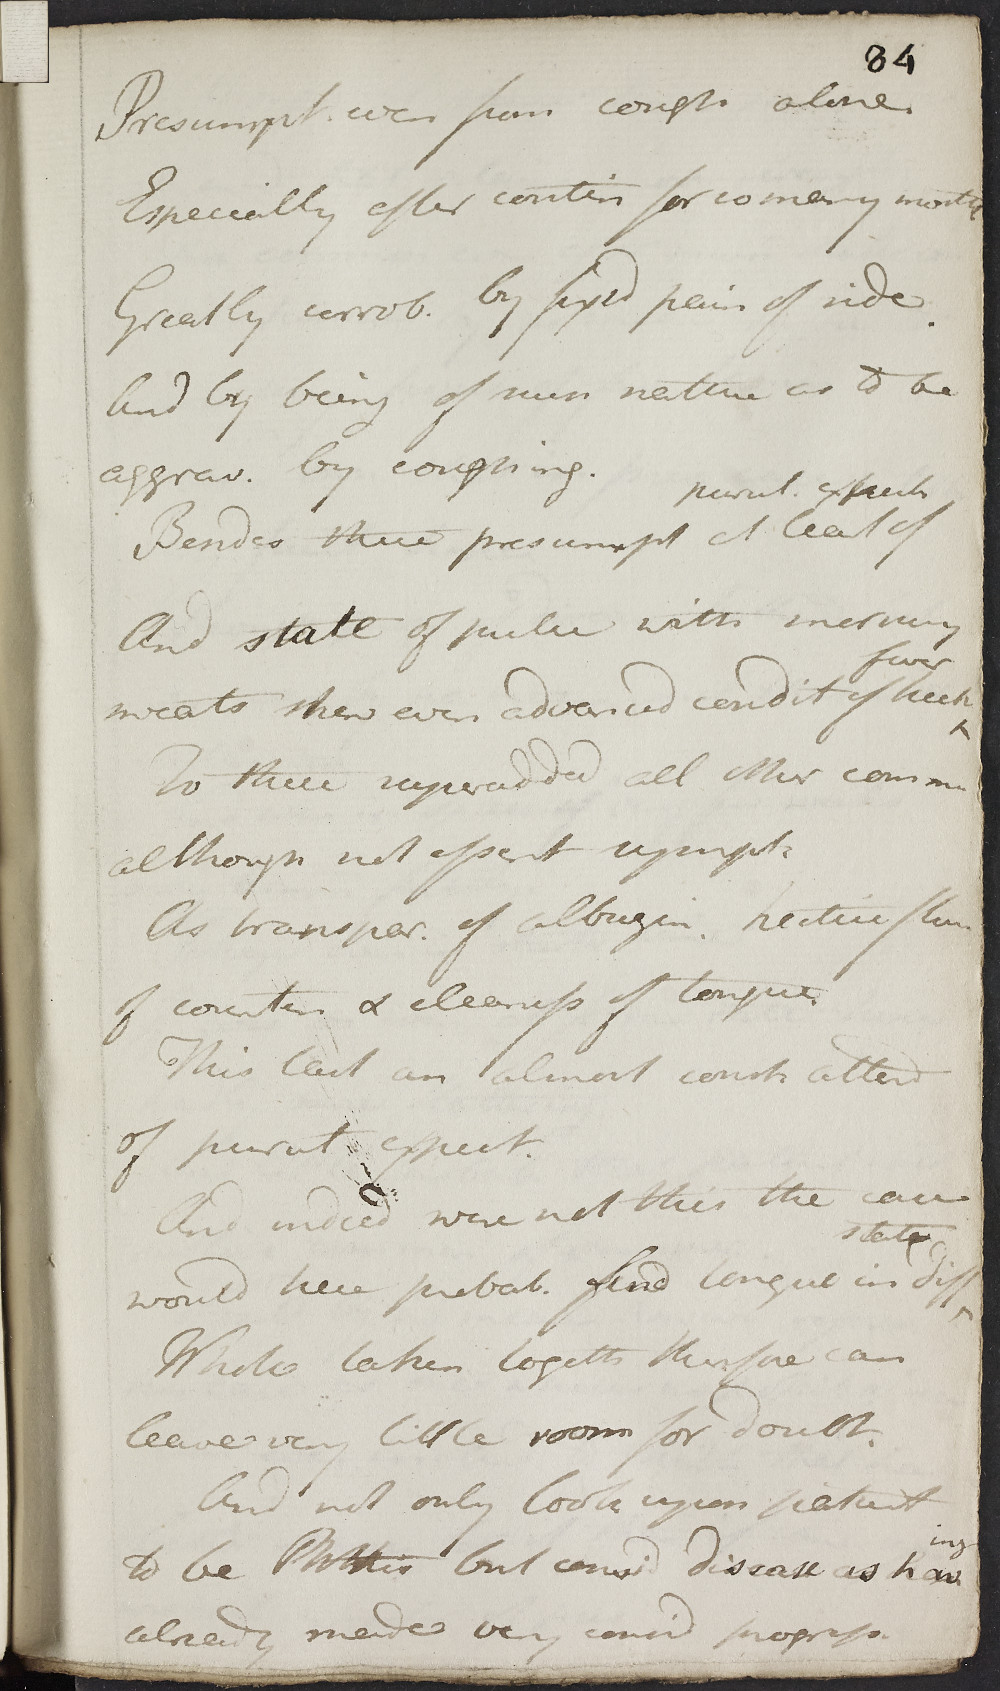 84
Presumpt. even from cough alone.
Especially after contin for so many month
Greatly corrob. by fixed pain of side.
And by being of such nature as to be
aggrav. by coughing.
purul. expect
Besides these presumpt at least of
And state of pulse with morning
fever
sweats shew even advanced condit of hect
To these superadded all other comm
although not essent sympt.
As transpar. of albugin. hectic flus
of counten & cleanness of tongue.
This last an almost const attend
of purul expect.
And indeed were not this the case
state
would here probab. find tongue in diff
Whole taken togeth therefore can
leave very little room for doubt.
And not only look upon patient
ing
to be Phthis but consid disease as hav
already made very consid progress.